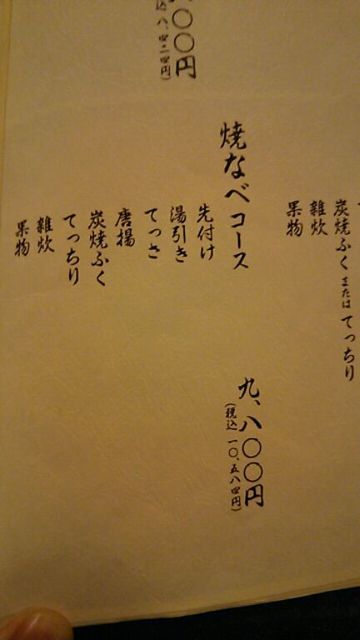 炭焼ふく または てっちり
雑炊
果物
焼なべコース
九、八〇〇円
(税込 一〇、五八四円)
先付け
湯引き
てっさ
唐揚
炭焼ふく
てっちり
雑炊
果物
八〇〇円
込 八、四二四円)